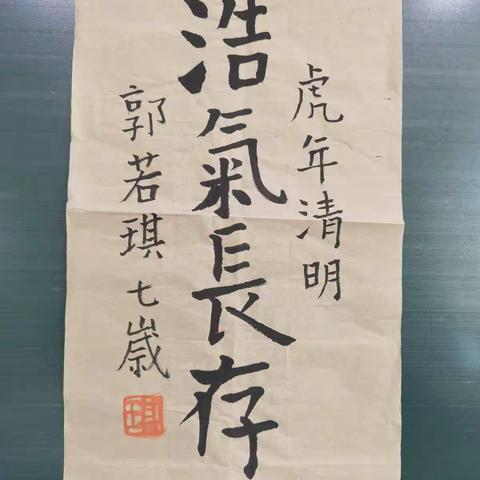 虎年清明
浩氣長存
郭若琪七歲
琪